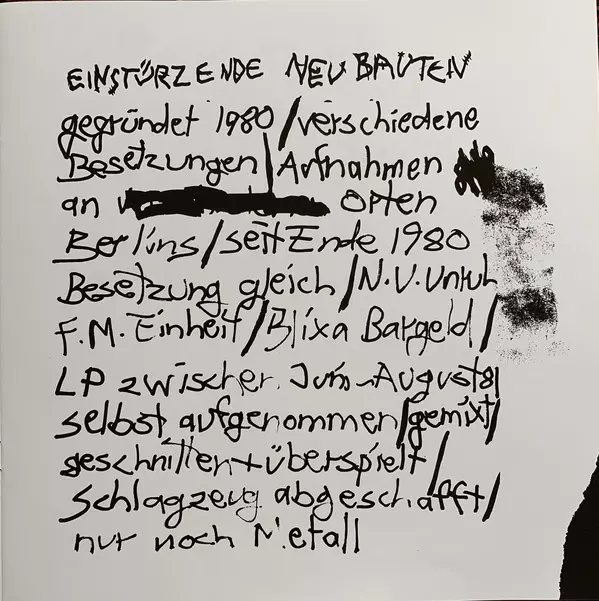 EINSTÜRZENDE NEUBAUTEN
gegründet 1980/verschiedene
Besetzungen/Aufnahmen
an Orten
Berlins/seit Ende 1980
Besetzung gleich/N.U.Unruh
F.M.Einheit/Blixa Bargeld/
LP zwischen Juni-August 81
selbst aufgenommen/gemixt/
geschnitten+überspielt/
Schlagzeug abgeschafft/
nur noch Metall